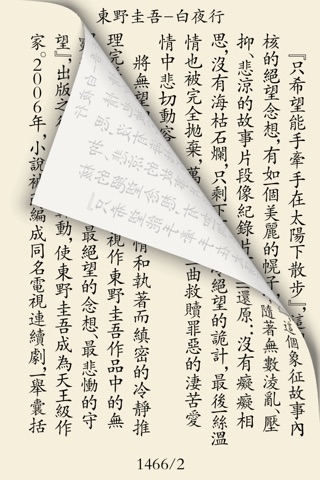 東野圭吾-白夜行
『只希望能手牽手在太陽下散步』,這個象征故事內
核的絕望念想,有如一個美麗的幌子,隨著無數凌亂、壓
抑、悲涼的故事片段像紀錄片一還原:沒有癡癡相
思,沒有海枯石爛,只剩下冷絕望的詭計,最後一絲溫
情也被完全拋棄,萬一曲救贖罪惡的淒苦愛
情中悲切動容
將無望情和執著而縝密的冷靜推
理完視作東野圭吾作品中的無
最絕望的念想、最悲慟的守
望』,出版之動,使東野圭吾成為天王級作
家。2006年,小說被編成同名電視連續劇,一舉囊括
1466/2